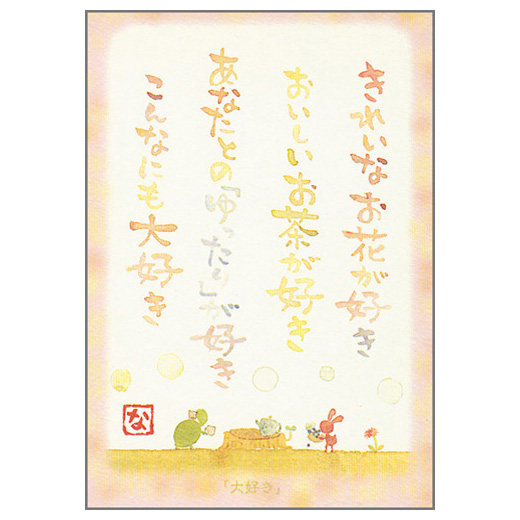 きれいなお花が好き
おいしいお茶が好き
あなたとの「ゆったり」が好き
こんなにも大好き
な
「大好き」